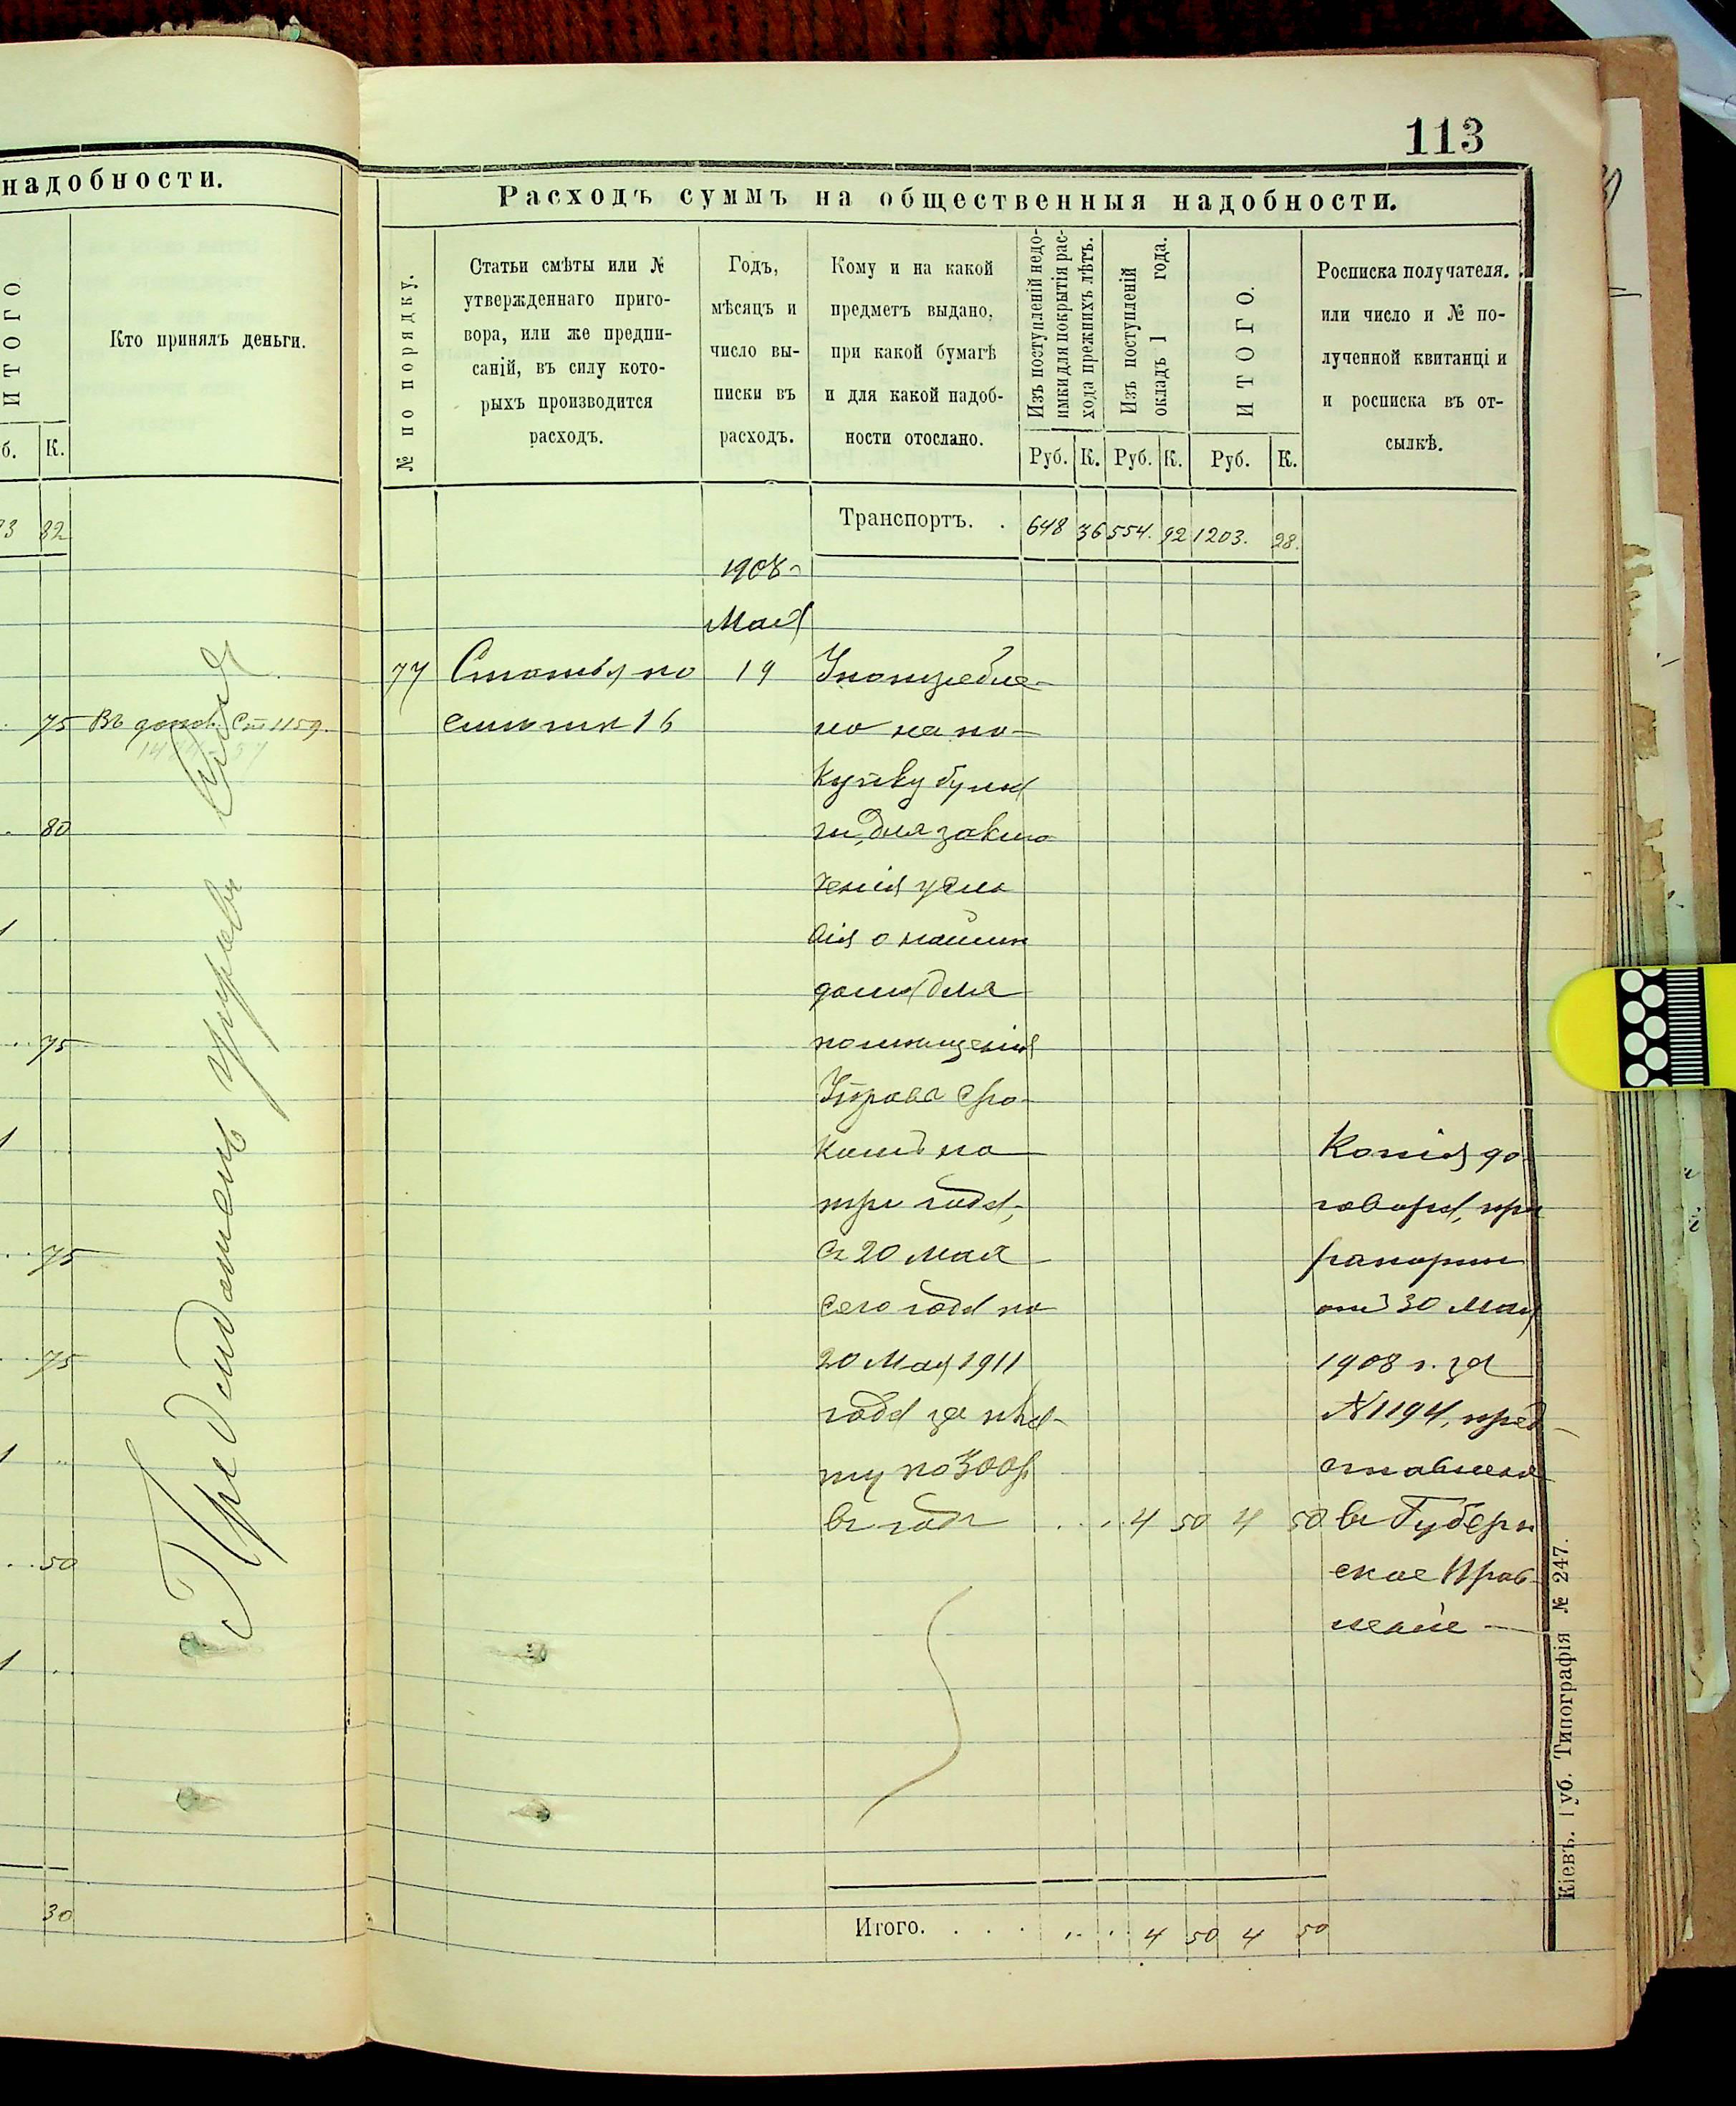 надобности.
ИТОГО
Кто принялъ деньги.
б. К.
3 82
75 Въ доход. Ст 1159.
80
75
75
75
50
30
Президентъ управы
113
Расходъ суммъ на общественныя надобности.
№ по порядку.
Статьи смѣты или №
утвержденнаго приго-
вора, или же предпи-
саній, въ силу кото-
рыхъ производится
расходъ.
Годъ,
мѣсяцъ и
число вы-
писки въ
расходъ.
Кому и на какой
предметъ выдано,
при какой бумагѣ
и для какой надоб-
ности отослано.
Изъ поступленій недо-
имки для покрытія рас-
хода прежнихъ лѣтъ.
Изъ поступленій
окладъ 1 года.
ИТОГО.
Росписка получателя.
или число и № по-
лученной квитанці и
и росписка въ от-
сылкѣ.
Руб. К. Руб. К. Руб. К.
Транспортъ. . 648 36 554. 92 1203. 28.
1908
Мая
77 Статья по 19 Употребле-
смѣтѣ 16 но на по-
купку бума
ги, для заклю
ченія усло
вія о наймѣ
дома для
помѣщенія
Управы сро-
комъ на
три года,
съ 20 Мая
сего года по
20 Мая 1911
года за пла-
ту по 300 р
въ годъ . . . 4 50 4 50
Копія до
говора, при
рапортѣ
отъ 30 Мая
1908 г. за
№ 1194, пред-
ставлена
въ Губерн
ское Прав-
леніе —
Итого. . . . . . . 4 50 4 50
Кіевъ. Губ. Типографія № 247.